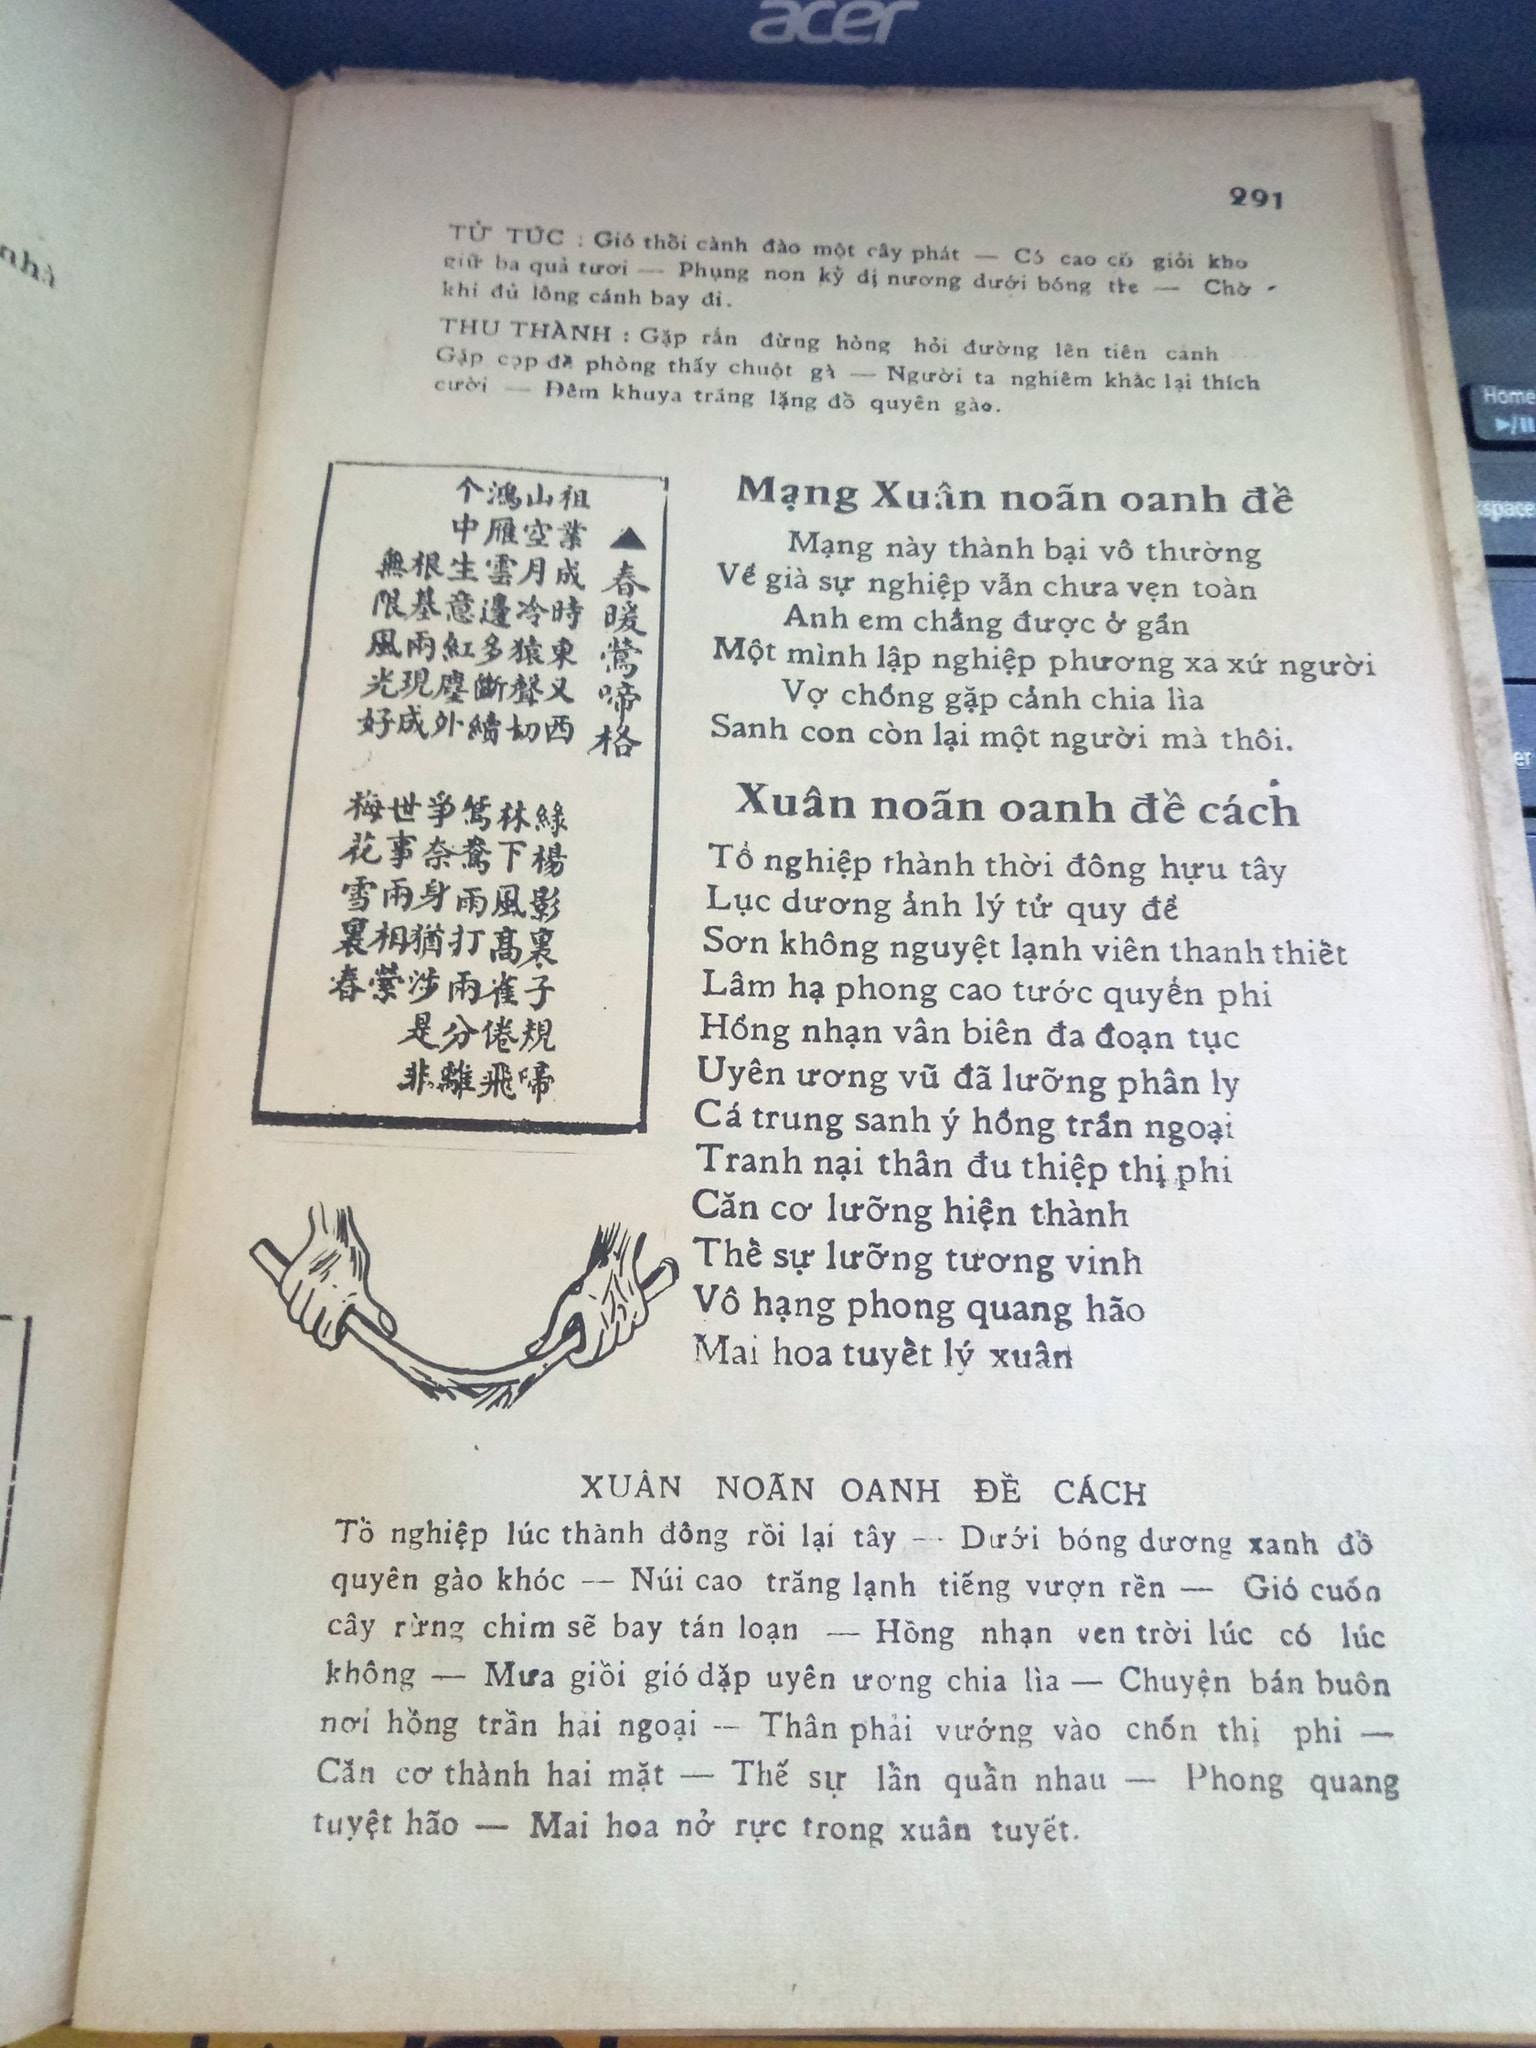 acer
Home
nhà
291
TỬ TỨC : Gió thồi cành đào một cây phát — Có cao cõ giỏi kho
giữ ba quả tươi — Phụng non kỳ dị nương dưới bóng tre — Chờ
khi đủ lông cánh bay đi.
THU THÀNH : Gặp rắn đừng hòng hỏi đường lên tiên cảnh
Gặp cọp đề phòng thấy chuột gà — Người ta nghiêm khắc lại thích
cười — Đêm khuya trăng lặng đỗ quyên gào.
▲春暖鶯啼格
祖業成時東又西
綠楊影裏子規啼
山空月冷猿聲切
林下風高雀倦飛
鴻雁雲邊多斷續
鴛鴦雨打兩分離
个中生意紅塵外
爭奈身猶涉是非
根基兩現成
世事兩相縈
無限風光好
梅花雪裏春
Mạng Xuân noãn oanh đề
Mạng này thành bại vô thường
Về già sự nghiệp vẫn chưa vẹn toàn
Anh em chẳng được ở gần
Một mình lập nghiệp phương xa xứ người
Vợ chồng gặp cảnh chia lìa
Sanh con còn lại một người mà thôi.
Xuân noãn oanh đề cách
Tổ nghiệp thành thời đông hựu tây
Lục dương ảnh lý tử quy đề
Sơn không nguyệt lạnh viên thanh thiết
Lâm hạ phong cao tước quyến phi
Hồng nhạn vân biên đa đoạn tục
Uyên ương vũ đã lưỡng phân ly
Cá trung sanh ý hồng trần ngoại
Tranh nại thân du thiệp thị phi
Căn cơ lưỡng hiện thành
Thế sự lưỡng tương vinh
Vô hạng phong quang hão
Mai hoa tuyết lý xuân
XUÂN NOÃN OANH ĐỀ CÁCH
Tồ nghiệp lúc thành đông rồi lại tây — Dưới bóng dương xanh đỗ
quyên gào khóc — Núi cao trăng lạnh tiếng vượn rền — Gió cuốn
cây rừng chim sẽ bay tán loạn — Hồng nhạn ven trời lúc có lúc
không — Mưa giồi gió dặp uyên ương chia lìa — Chuyện bán buôn
nơi hồng trần hải ngoại — Thân phải vướng vào chốn thị phi —
Căn cơ thành hai mặt — Thế sự lần quần nhau — Phong quang
tuyệt hão — Mai hoa nở rực trong xuân tuyết.